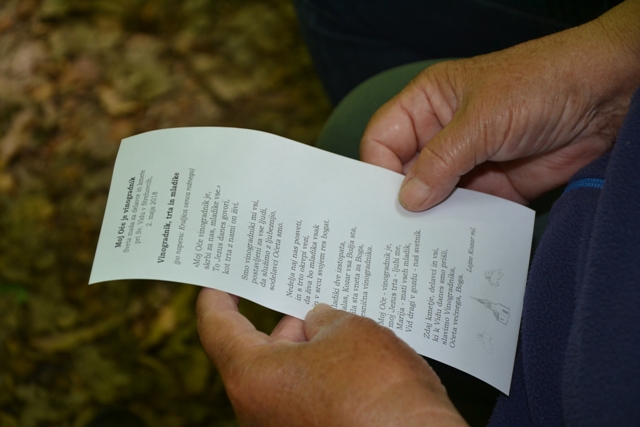 Moj Oče je vinogradnik
Sveta maša za delavce in kmete
pri Sv. Vidu v
2. maja 2018
Vinogradnik, trta in mladike
(po napevu: Kraljica venca rožnega)
»Moj Oče vinogradnik je,
skrbi za nas, mladike vse.«
To Jezus danes govori,
kot trta z nami on živi.
Smo vinogradniki mi vsi,
postavljeni za vse ljudi,
da služimo z ljubeznijo,
sodelavci Očeta smo.
Nedelja naj nas posveti,
in s trto okrepi vezi,
da zares bo mladika vsak
in v srcu svojem res bogat.
mladiki dve izstopata,
Kozar vsa Božja sta,
bila sta vneta za Boga,
vinogradnika.
Moj Oče - vinogradnik je,
moj Jezus trta - ljubi me,
Marija - mati vseh mladik,
Vid dragi v gozdu - naš svetnik.
Zdaj kmetje, delavci in vsi,
ki k Vidu danes smo prišli,
slavimo Vinogradnika,
Očeta večnega, Boga.
Lojze Kozar ml.